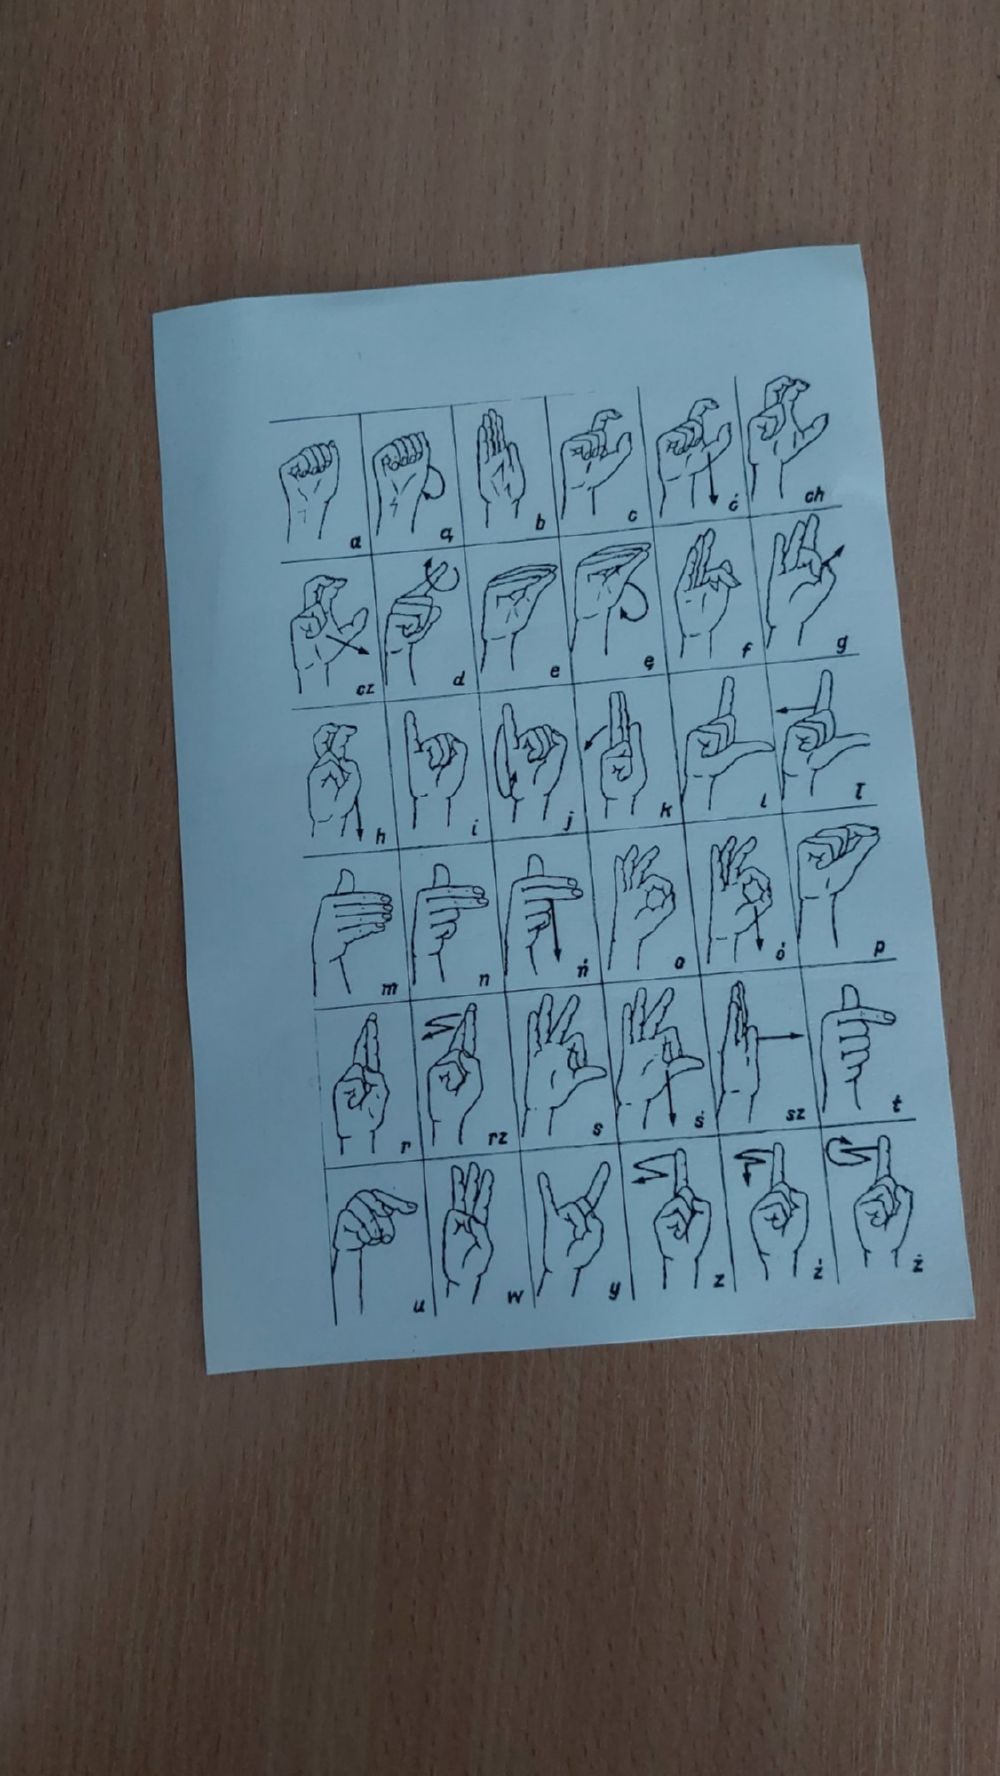 a ą b c ć ch
cz d e ę f g
h i j k l ł
m n ń o ó p
r rz s ś sz t
u w y z ź ż